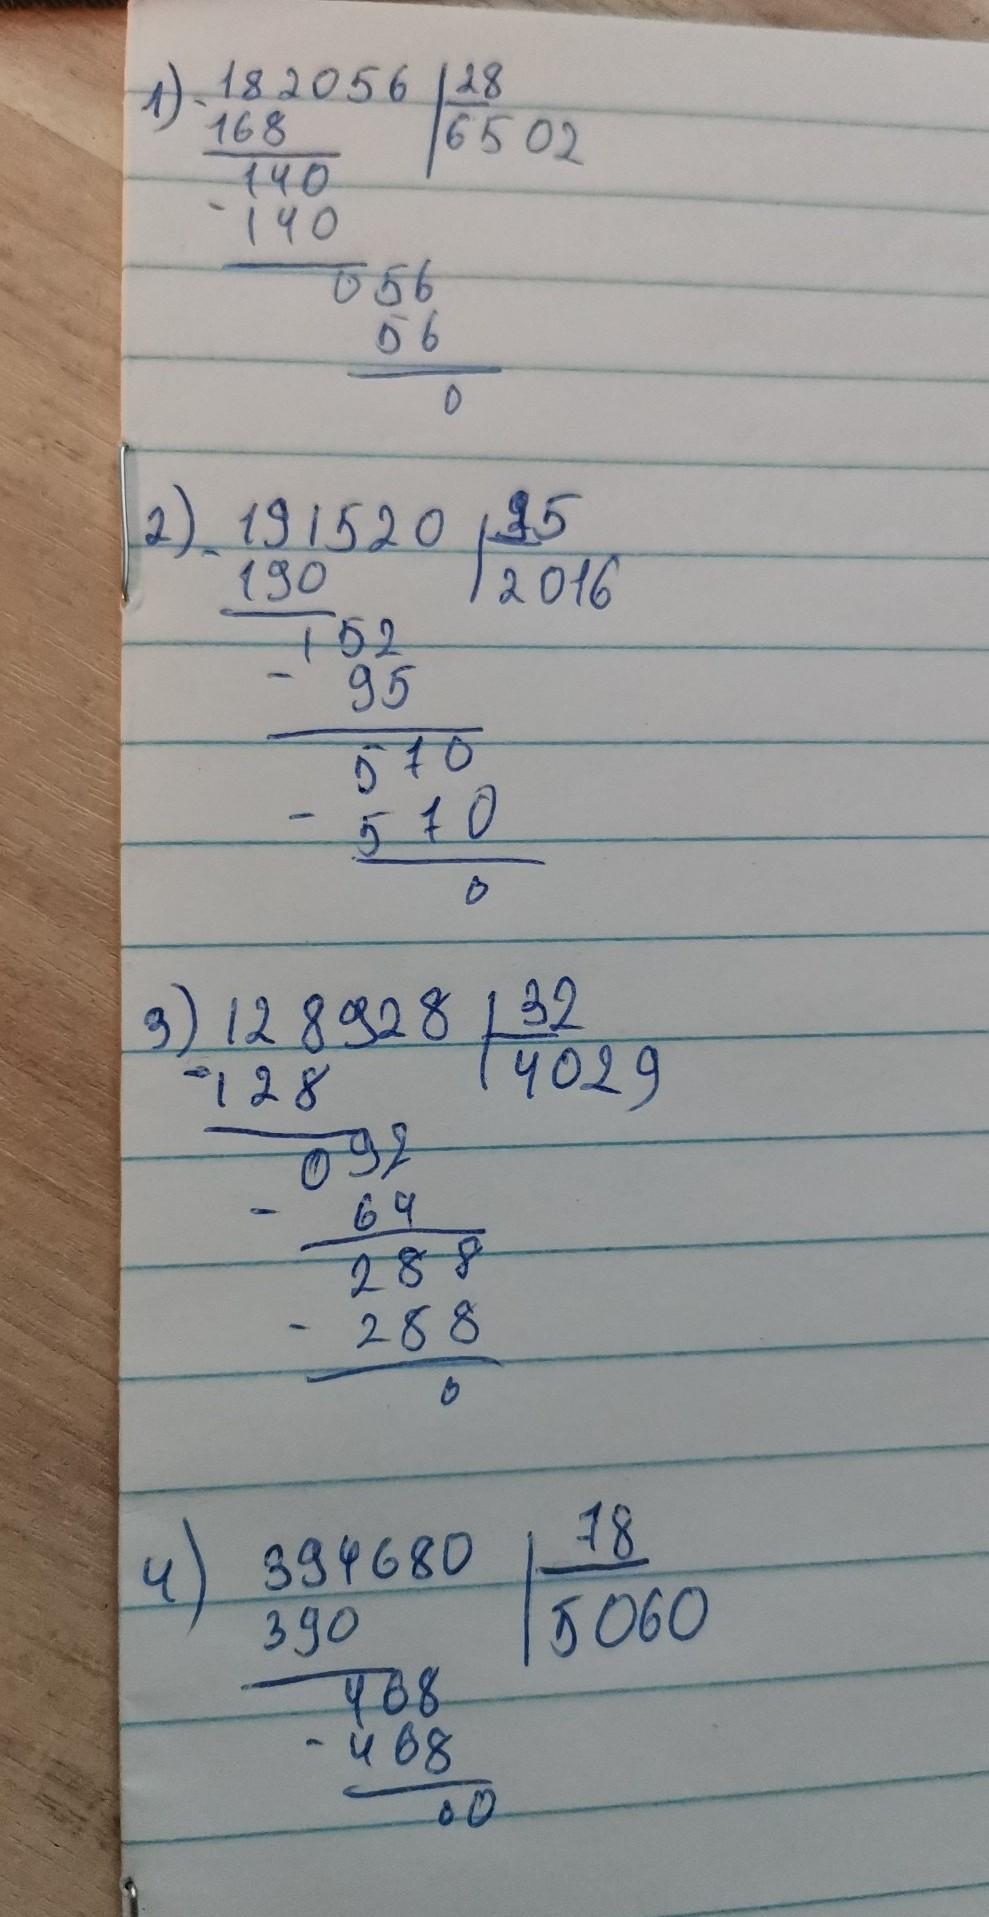 1) - 182056 | 28
168 | 6502
140
- 140
056
56
0
2) - 191520 | 95
190 | 2016
152
- 95
570
- 570
0
3) 128928 | 32
- 128 | 4029
092
- 64
288
- 288
0
4) 394680 | 78
390 | 5060
468
- 468
00